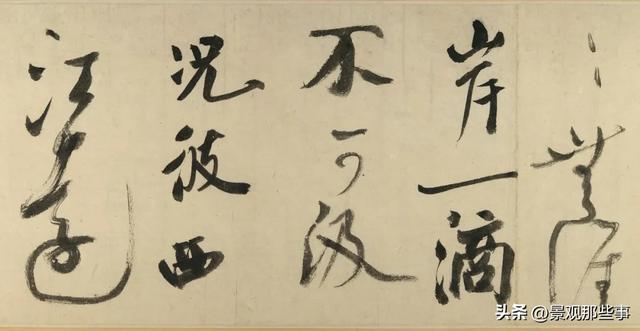 〻無涯
岸一滴
不可汲
况彼西
江遠
头条 @景观那些事